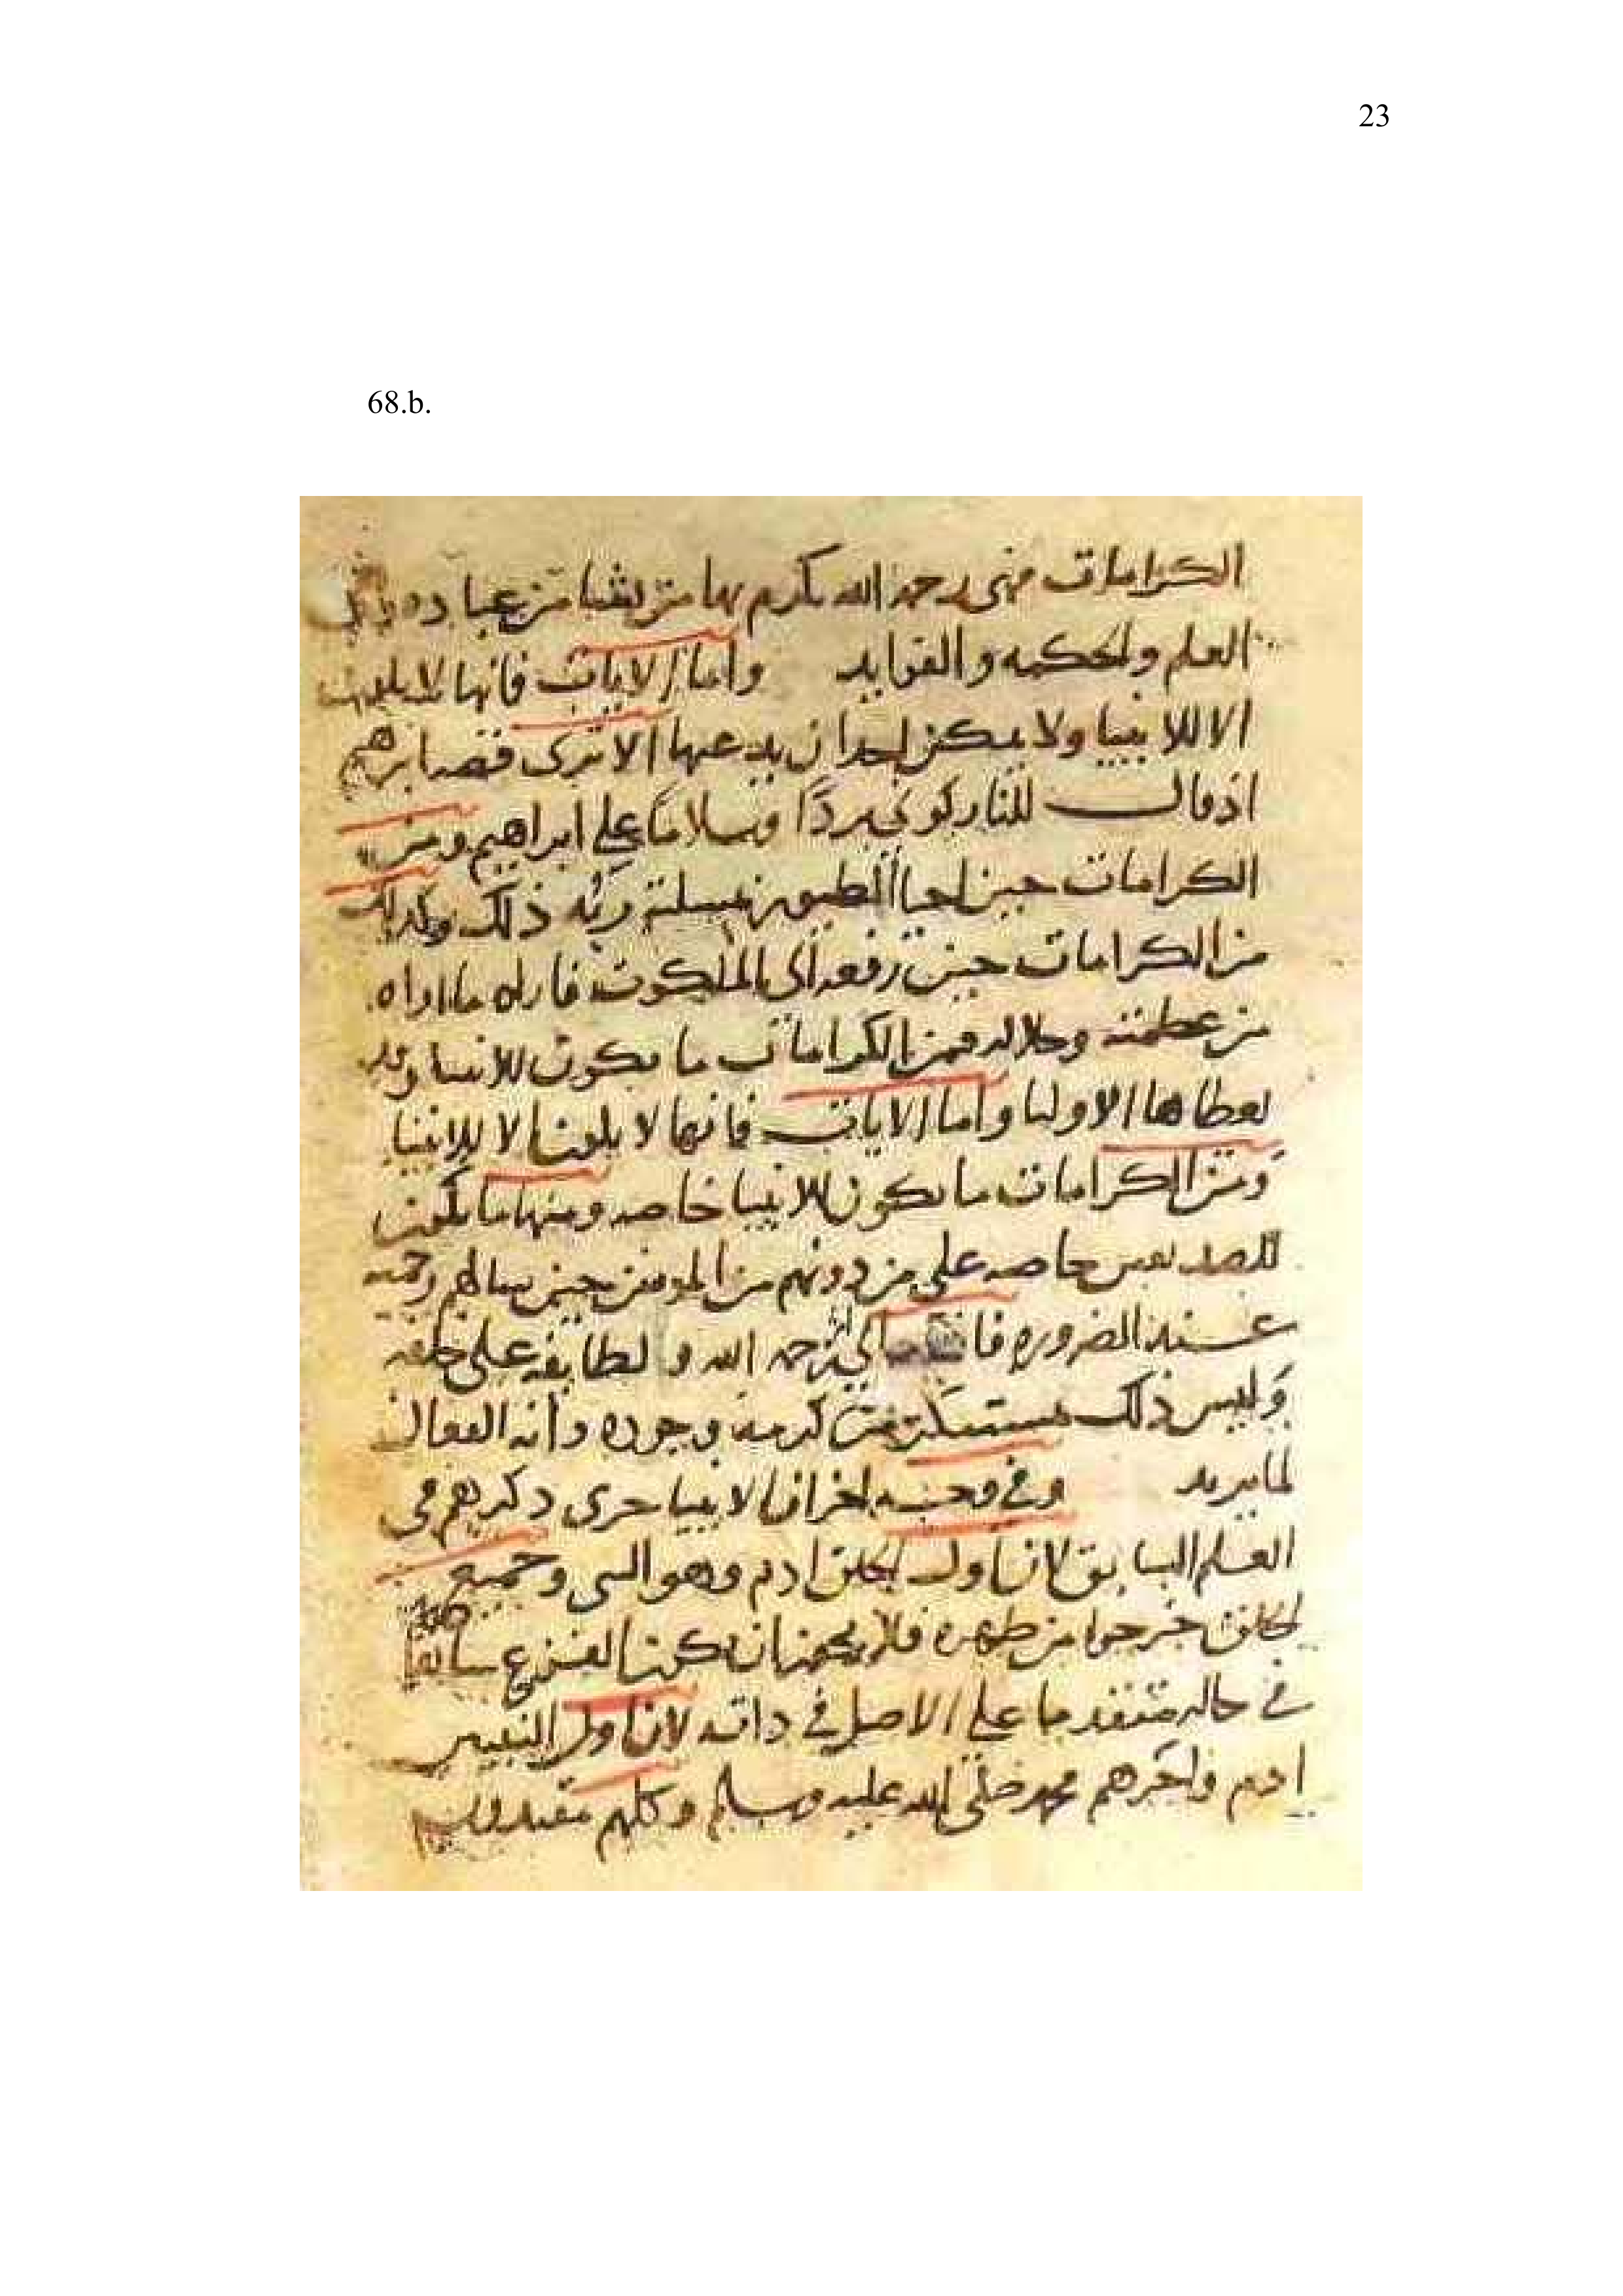 23
68.b.
الكرامات فهى رحمه الله يكرم بها من يشا من عباده
العلم والحكمه والفوايد واما الايات فانها لا
الا للانبيا ولا يمكن لاحد ان يدعيها الا ترى قصه ابرهيم
اذ قال للنار كونى بردًا وسلامًا على ابراهيم ومن
الكرامات حين احيا الطيور ربه ذلك وكذلك
من الكرامات حين رفعه الى الملكوت فاراه ما اراه
من عظمته وجلاله فمن الكرامات ما يكون للانبيا وقد
يعطاها الاوليا واما الايات فانها لا الا للانبيا
ومن الكرامات ما يكون للانبيا خاصه ومنها ما يكون
للصديقين خاصه على من دونهم من المومنين حين رحمته
عند الضروره رحمه الله ولطايفه على خلقه
وليس ذلك من كرمه وجوده وانه الفعال
لما يريد وفى اخر ان الانبيا جرى ذكرهم فى
العلم السابق لان اول الخلق ادم وهو النبى وجميع
الخلق خرجوا من ظهره فلا ان
فى حاله متقدما على الاصل فى ذاته لان اول النبيين
ادم واخرهم محمد صلى الله عليه وسلم وكلهم